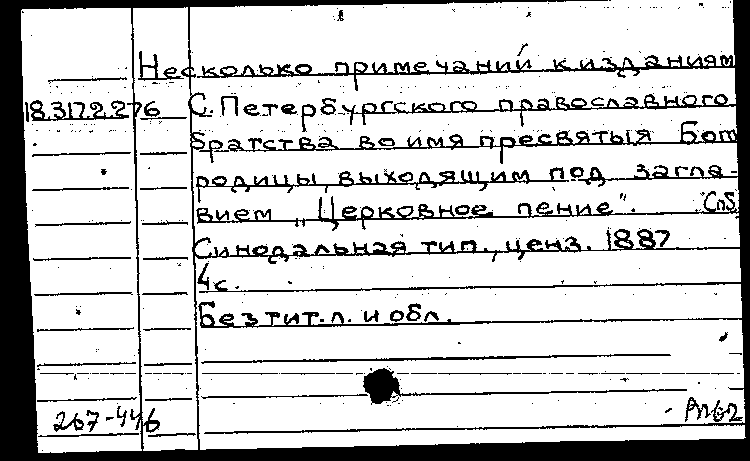 Несколько примечаний к изданиям
18.317.2.276 С.Петербургского православного
братства во имя пресвятыя Бог
родицы, выходящим под загла-
вием „Церковное пение". СПб
Синодальная тип., ценз. 1887
4с.
Без тит.л. и обл.
267-446